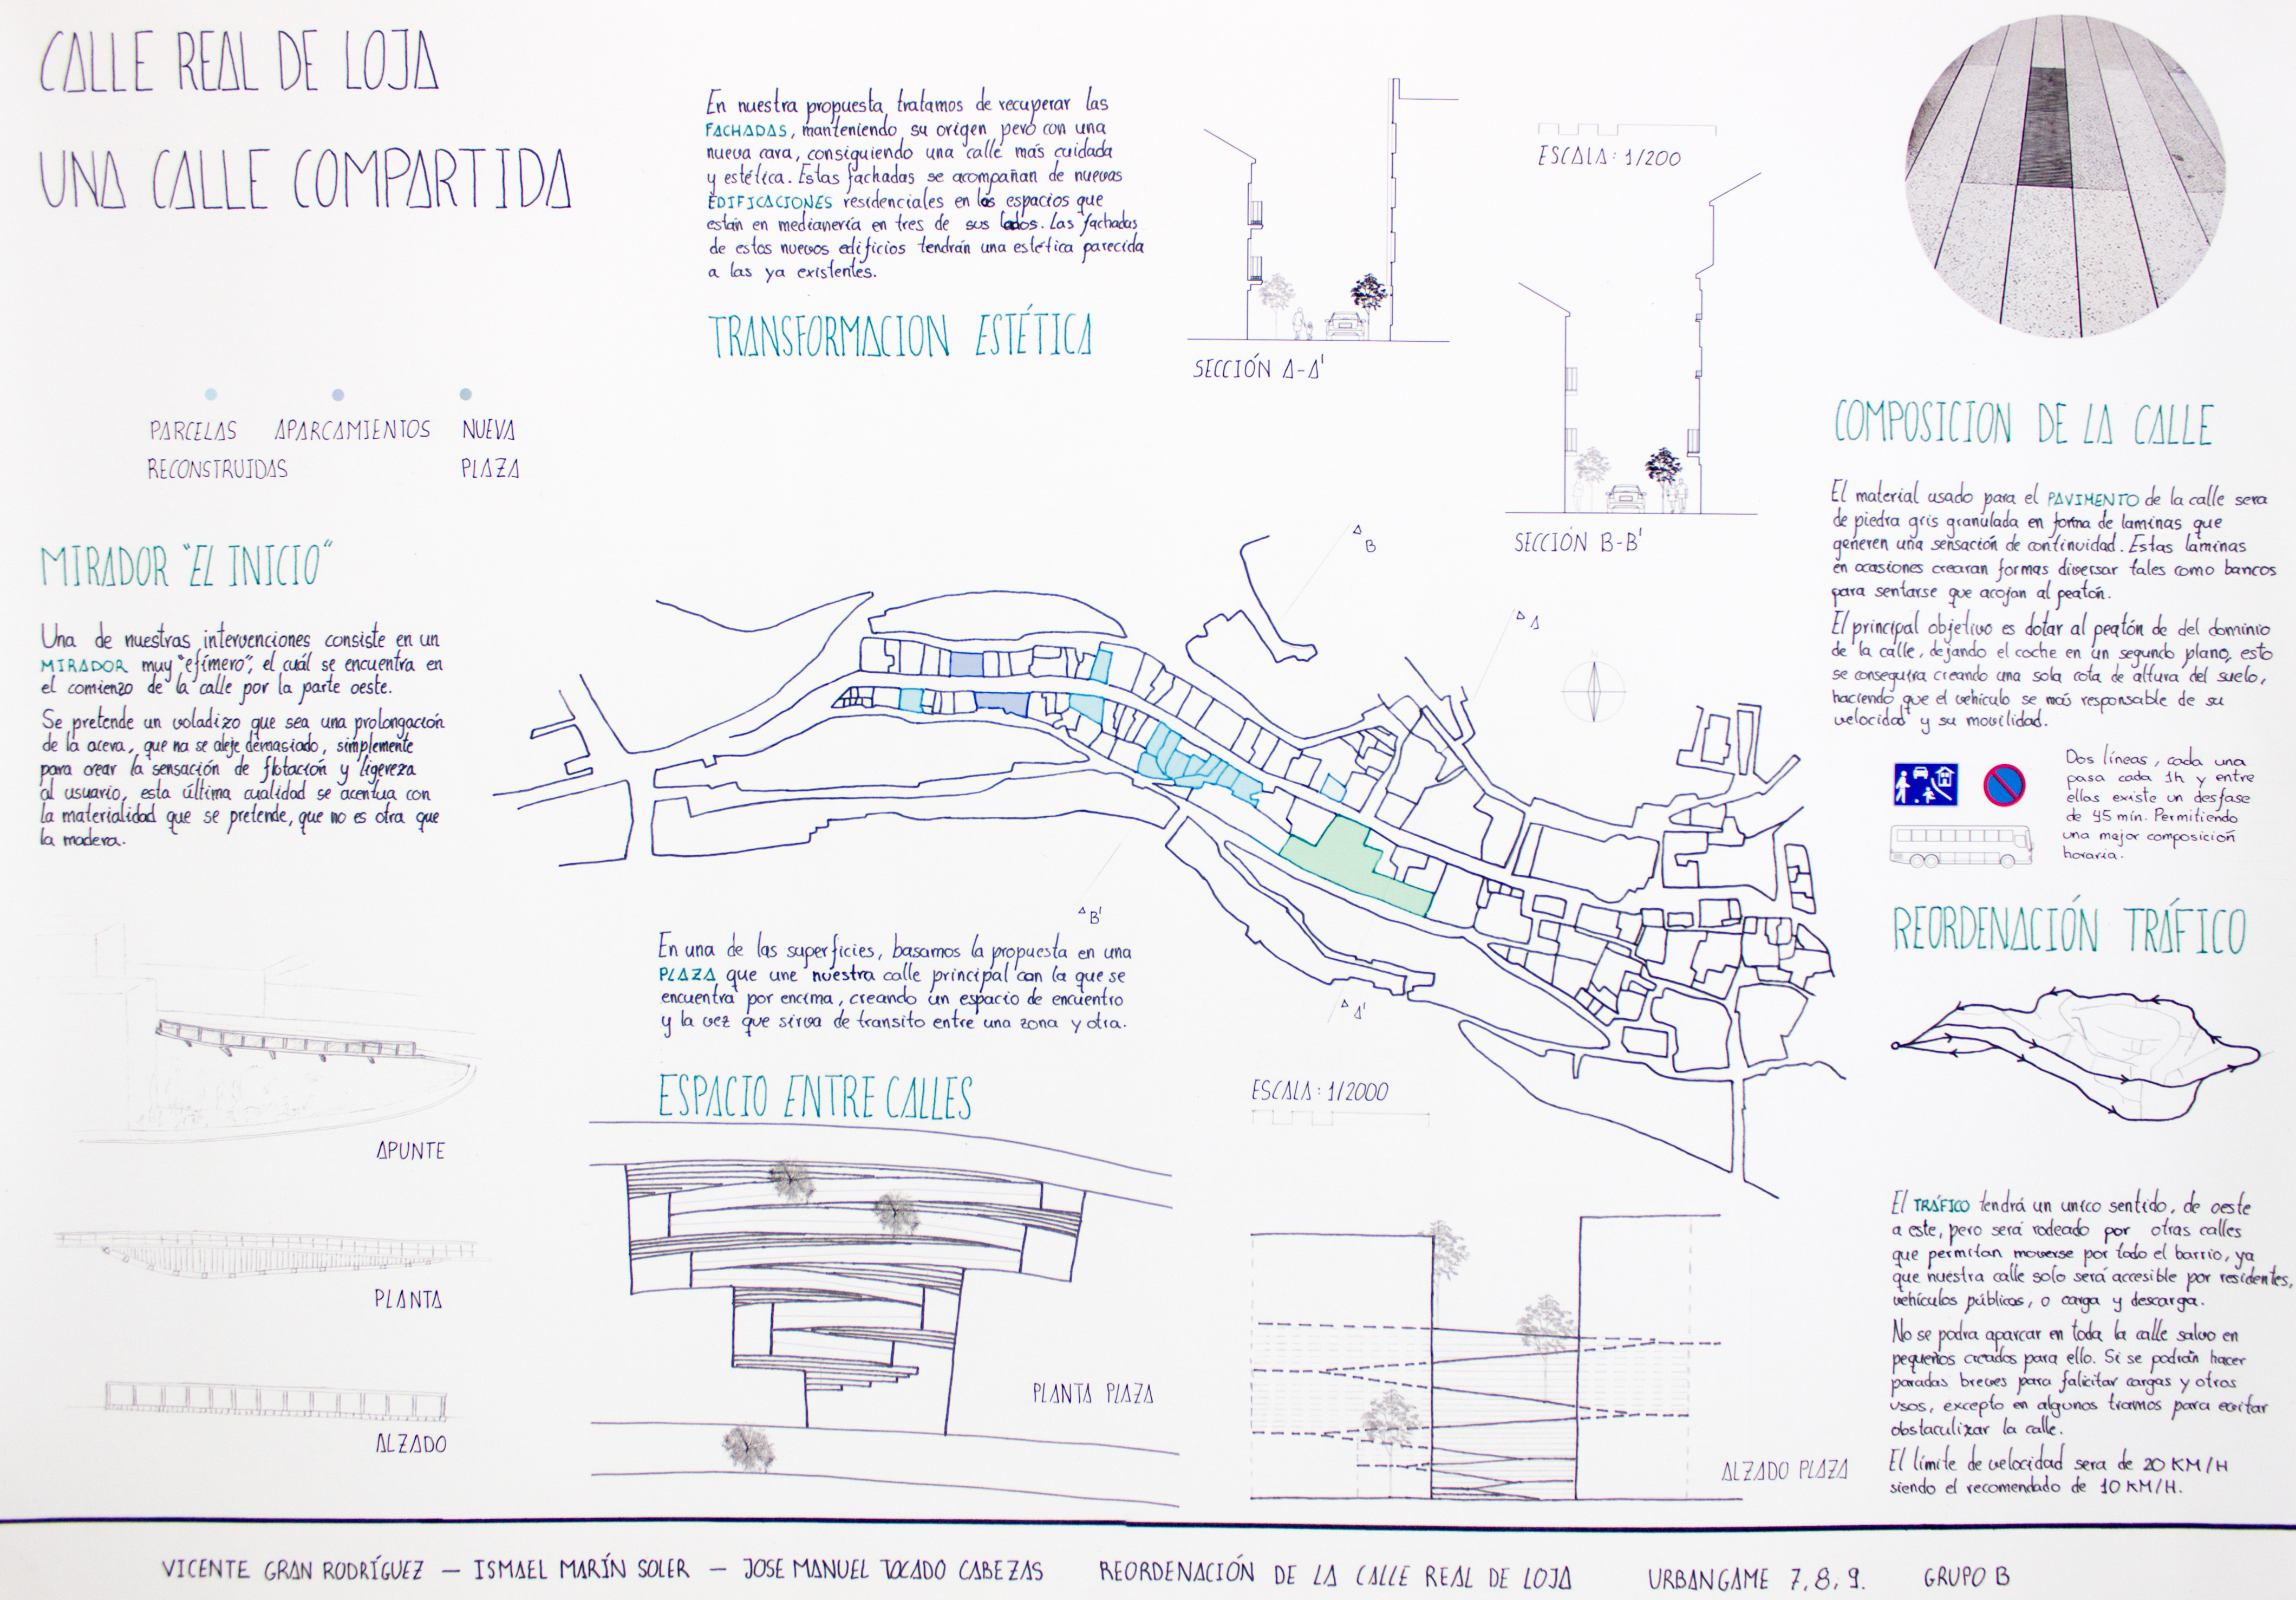 CALLE REAL DE LOJA
UNA CALLE COMPARTIDA
PARCELAS
RECONSTRUIDAS
APARCAMIENTOS
NUEVA
PLAZA
MIRADOR "EL INICIO"
Una de nuestras intervenciones consiste en un
MIRADOR muy "efímero", el cuál se encuentra en
el comienzo de la calle por la parte oeste.
Se pretende un voladizo que sea una prolongación
de la acera, que na se aleje demasiado, simplemente
para crear la sensación de flotación y ligereza
al usuario, esta última cualidad se acentua con
la materialidad que se pretende, que no es otra que
la madera.
APUNTE
PLANTA
ALZADO
En nuestra propuesta tratamos de recuperar las
FACHADAS, manteniendo su origen pero con una
nueva cara, consiguiendo una calle más cuidada
y estética. Estas fachadas se acompañan de nuevas
EDIFICACIONES residenciales en los espacios que
están en medianería en tres de sus lados. Las fachadas
de estos nuevos edificios tendrán una estética parecida
a las ya existentes.
TRANSFORMACION ESTÉTICA
SECCIÓN A-A'
ESCALA: 1/200
SECCIÓN B-B'
B
A
N
B'
A'
En una de las superficies, basamos la propuesta en una
PLAZA que une nuestra calle principal con la que se
encuentra por encima, creando un espacio de encuentro
y la vez que sirva de transito entre una zona y otra.
ESPACIO ENTRE CALLES
ESCALA: 1/2000
PLANTA PLAZA
ALZADO PLAZA
COMPOSICION DE LA CALLE
El material usado para el PAVIMENTO de la calle sera
de piedra gris granulada en forma de laminas que
generen una sensación de continuidad. Estas láminas
en ocasiones crearan formas diversar tales como bancos
para sentarse que acojan al peatón.
El principal objetivo es dotar al peatón de del dominio
de la calle, dejando el coche en un segundo plano, esto
se conseguira creando una sola cota de altura del suelo,
haciendo que el vehículo se más responsable de su
velocidad y su movilidad.
Dos líneas, cada una
pasa cada 1h y entre
ellas existe un desfase
de 45 min. Permitiendo
una mejor composición
horaria.
REORDENACIÓN TRÁFICO
El TRÁFICO tendrá un unico sentido, de oeste
a este, pero será rodeado por otras calles
que permitan moverse por todo el barrio, ya
que nuestra calle solo será accesible por residentes,
vehículos públicos, o carga y descarga.
No se podra aparcar en toda la calle salvo en
pequeños creados para ello. Si se podrán hacer
paradas breves para falicitar cargas y otros
usos, excepto en algunos tramos para evitar
obstaculizar la calle.
El límite de velocidad sera de 20 KM/H
siendo el recomendado de 10 KM/H.
VICENTE GRAN RODRÍGUEZ — ISMAEL MARÍN SOLER — JOSE MANUEL TOCADO CABEZAS REORDENACIÓN DE LA CALLE REAL DE LOJA URBANGAME 7, 8, 9. GRUPO B